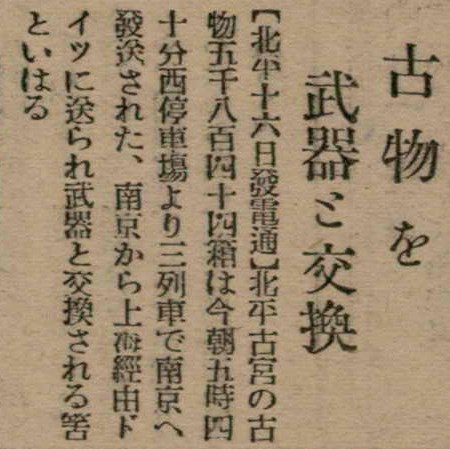 古物を
武器と交換
【北平十六日發電通】北平古宮の古
物五千八百四十四箱は今朝五時四
十分西停車場より三列車で南京へ
發送された、南京から上海經由ド
イツに送られ武器と交換される筈
といはる